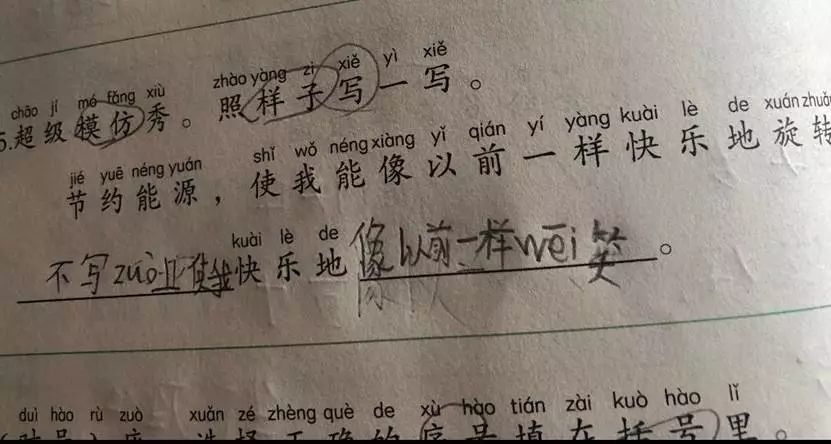 chāo jí mó fǎng xiù zhào yàng zi xiě yì xiě
5.超级模仿秀。照样子写一写。
jié yuē néng yuán shǐ wǒ néng xiàng yǐ qián yí yàng kuài lè de xuán zhuǎn
节约能源，使我能像以前一样快乐地旋转
kuài lè de
不写zuò业使我快乐地像以前一样wēi笑。
duì hào rù zuò xuǎn zé zhèng què de xù hào tián zài kuò hào lǐ
对号入座，选择正确的序号填在括号里。